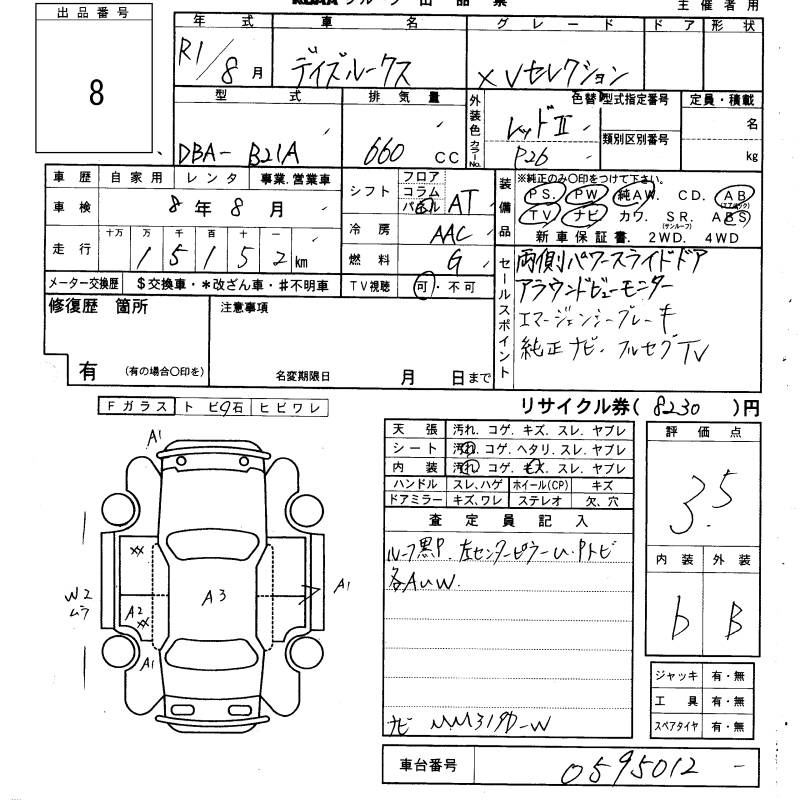 出品番号
8
グループ 出品票
主催者用
年式 R1/8月
車名 デイズルークス
グレード XVセレクション
ドア形状
型式 DBA- B21A
排気量 660 CC
外装色 色替 レッドII
カラーNo. P26
型式指定番号
類別区別番号
定員・積載
名
kg
車歴 自家用 レンタ 事業.営業車
車検 8年8月
走行 十万 万 千 百 十 一
15152km
シフト フロア コラム パネル AT
冷房 AAC
燃料 G
装備品
※純正のみ〇印をつけて下さい。
PS. PW 純AW. CD. AB(エアバック)
TV ナビ カワ. SR.(サンルーフ) ABS
新車保証書. 2WD. 4WD
メーター交換歴 $交換車・*改ざん車・#不明車
TV視聴 可・不可
セールスポイント
両側パワースライドドア
アラウンドビューモニター
エマージェンシーブレーキ
純正ナビ・フルセグTV
修復歴 箇所
有 (有の場合〇印を)
注意事項
名変期限日 月 日まで
リサイクル券( 8230 )円
Fガラス トビ石 ヒビワレ
天張 汚れ. コゲ. キズ. スレ. ヤブレ
シート 汚れ. コゲ. ヘタリ. スレ. ヤブレ
内装 汚れ. コゲ. キズ. スレ. ヤブレ
ハンドル スレ、ハゲ ホイール(CP) キズ
ドアミラー キズ、ワレ ステレオ 欠、穴
評価点
3.5
内装 外装
b B
査定員記入
ルーフ黒P. 左センターピラーU・Pトビ
各AUW.
ナビ MM319D-W
A1
W2
ムラ
XX
A2
XX
A1
A3
A1
ジャッキ 有・無
工具 有・無
スペアタイヤ 有・無
車台番号 0595012